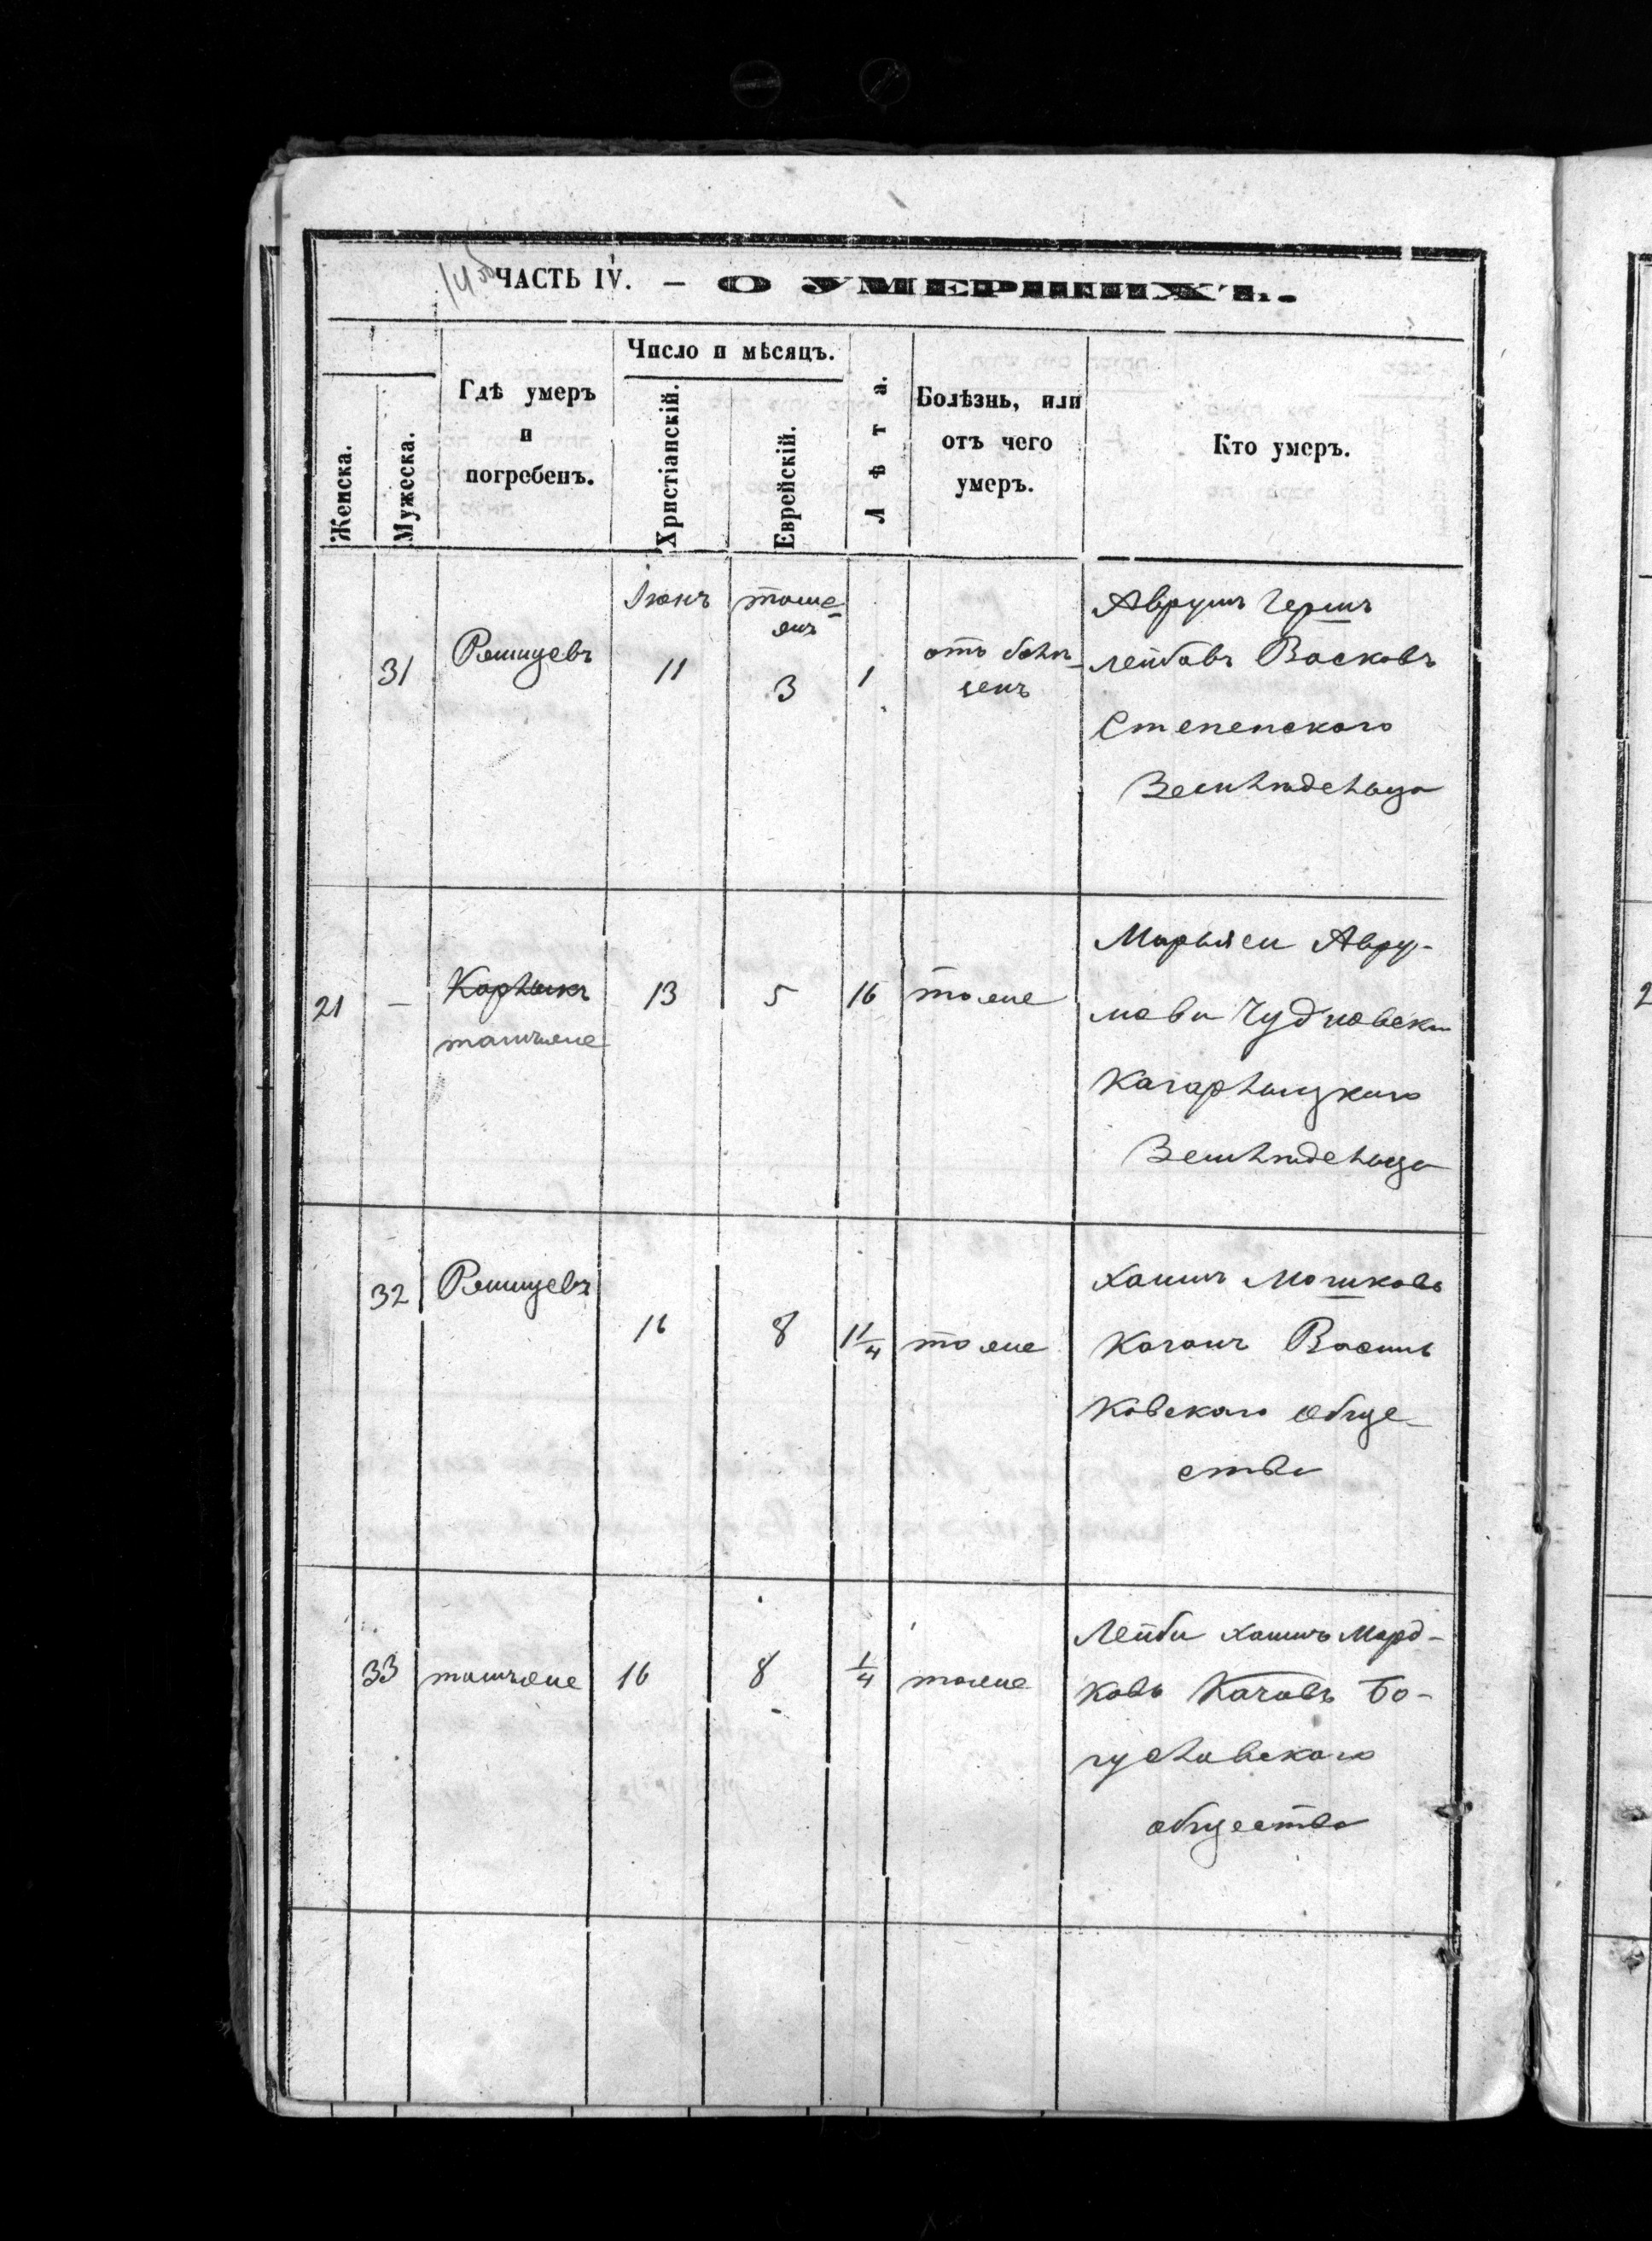 14об
ЧАСТЬ IV. — О УМЕРШИХЪ.
Женска.
Мужеска.
Гдѣ умеръ
и
погребенъ.
Число и мѣсяцъ.
Христіанскій.
Еврейскій.
Лѣта.
Болѣзнь, или
отъ чего
умеръ.
Кто умеръ.
31
Ржищевъ
Іюнь
11
3
1
Аврумъ Герш
Лейбовъ Васковъ
Степенского
Землѣдельца
21
—
13
5
16
тоже
Марьяси Авру-
мова Чудновски
Кагарлыцкого
Землѣдельца
32
Ржищевъ
16
8
1 1/4
тоже
Хаимъ Мошковъ
Коганъ Василь
ковского обще-
ства
33
16
8
1/4
тоже
Лейби Хаимъ Морд-
ковъ Бо-
гуславского
общества